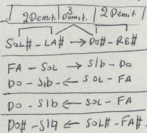 2 Demit. | 3 Demit. | 2 Demit.
SOL# - LA# → DO# - RE#
FA - SOL → SIb - DO
DO - SIb - ← SOL - FA
DO - SIb ← SOL - FA
DO# - SI♮ ← SOL# - FA#